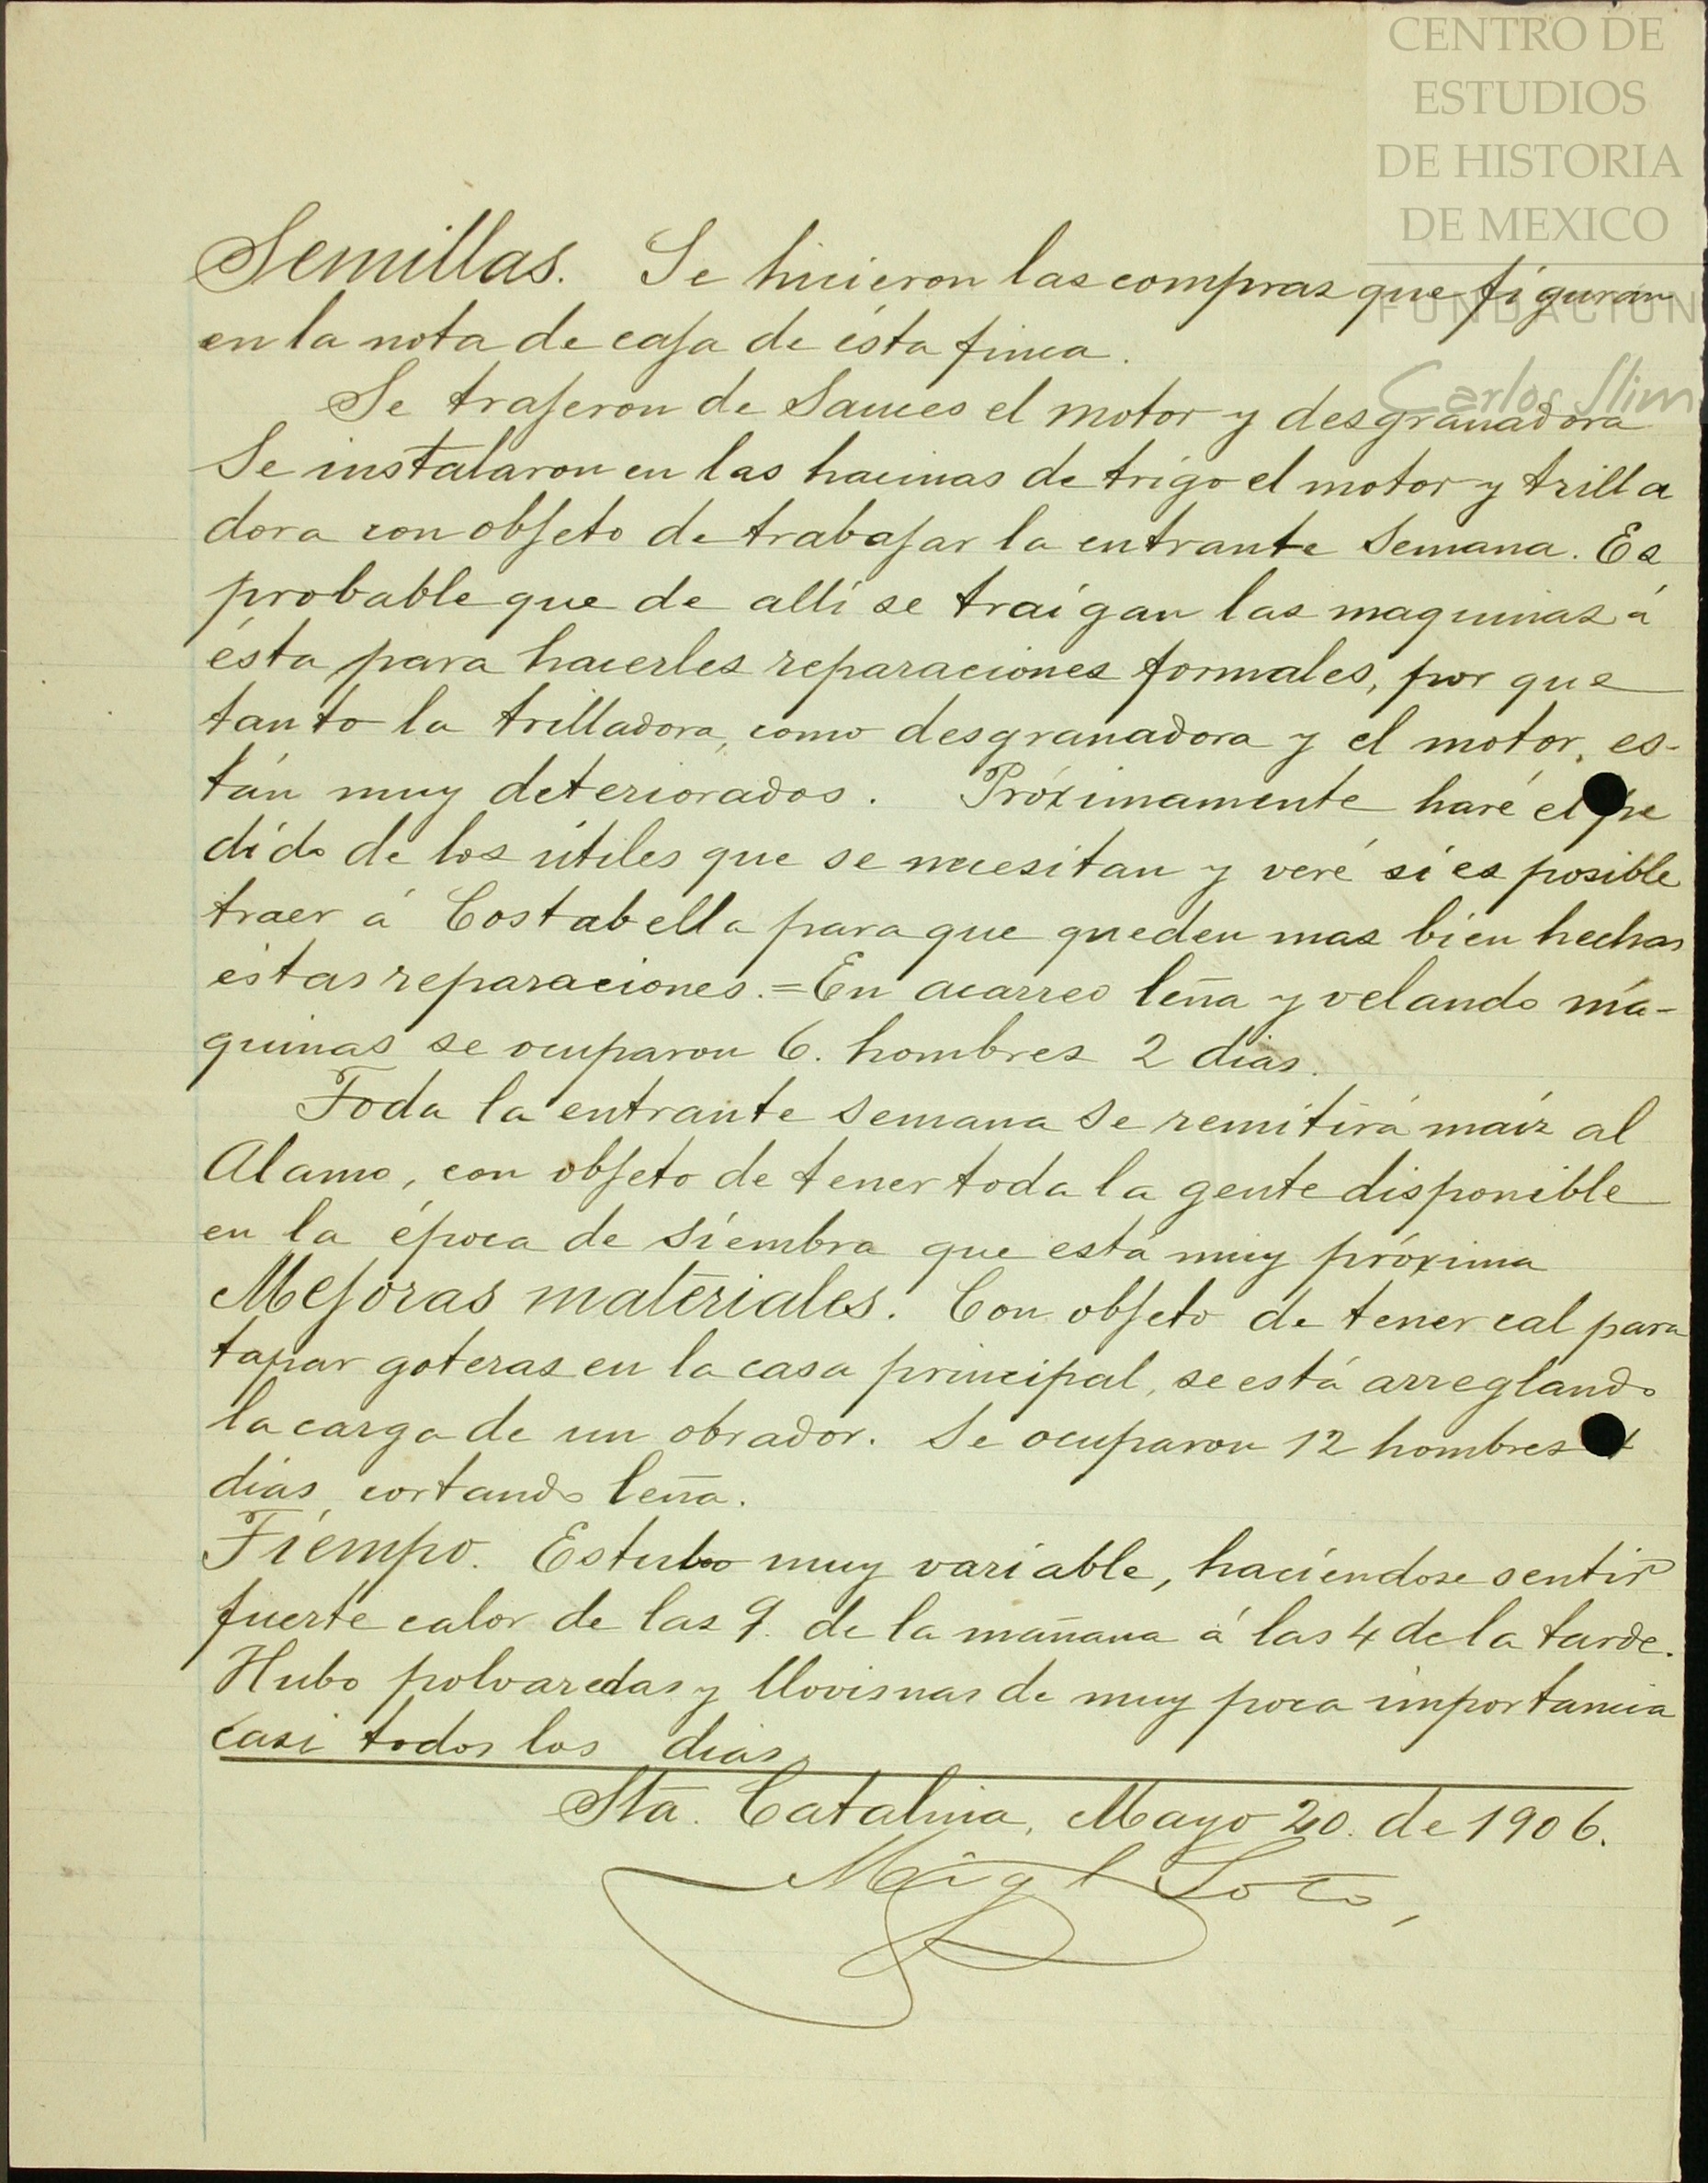 CENTRO DE
ESTUDIOS
DE HISTORIA
DE MEXICO
FUNDACION
Carlos Slim
Semillas. Se hicieron las compras que figuran
en la nota de caja de ésta finca.
Se trajeron de Sauces el motor y desgranadora
Se instalaron en las hacinas de trigo el motor y trilla
dora con objeto de trabajar la entrante Semana. Es
probable que de allí se traigan las maquinas á
ésta para hacerles reparaciones formales, por que
tanto la trilladora, como desgranadora y el motor, es-
tán muy deteriorados. Próximamente haré el pe
dido de los útiles que se necesitan y veré si es posible
traer á Costabella para que queden mas bien hechas
éstas reparaciones.=En acarreo leña y velando má-
quinas se ocuparon 6. hombres 2 dias.
Toda la entrante semana se remitirá maíz al
Alamo, con objeto de tener toda la gente disponible
en la época de siembra que está muy próxima
Mejoras materiales. Con objeto de tener cal para
tapar goteras en la casa principal, se está arreglando
la carga de un obrador. Se ocuparon 12 hombres
dias cortando leña.
Tiempo. Estubo muy variable, haciendose sentir
fuerte calor de las 9. de la mañana á las 4 de la tarde.
Hubo polvaredas y llovisnas de muy poca importancia
casi todos los dias,
Sta. Catalina, Mayo 20. de 1906.
Migl Soto,